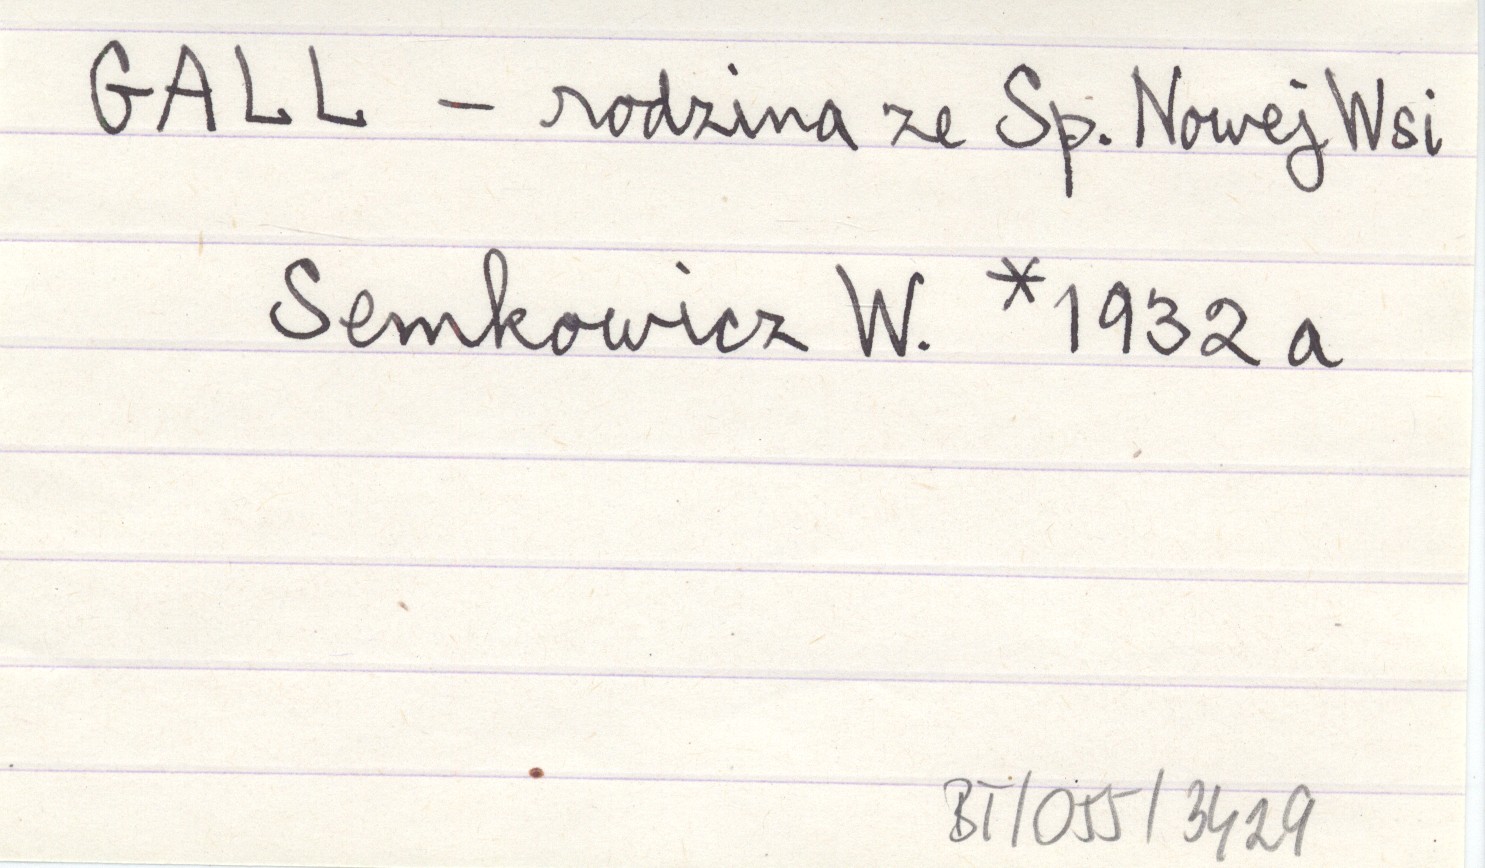 GALL – rodzina ze Sp. Nowej Wsi
Semkowicz W. *1932 a
BT/055/3429